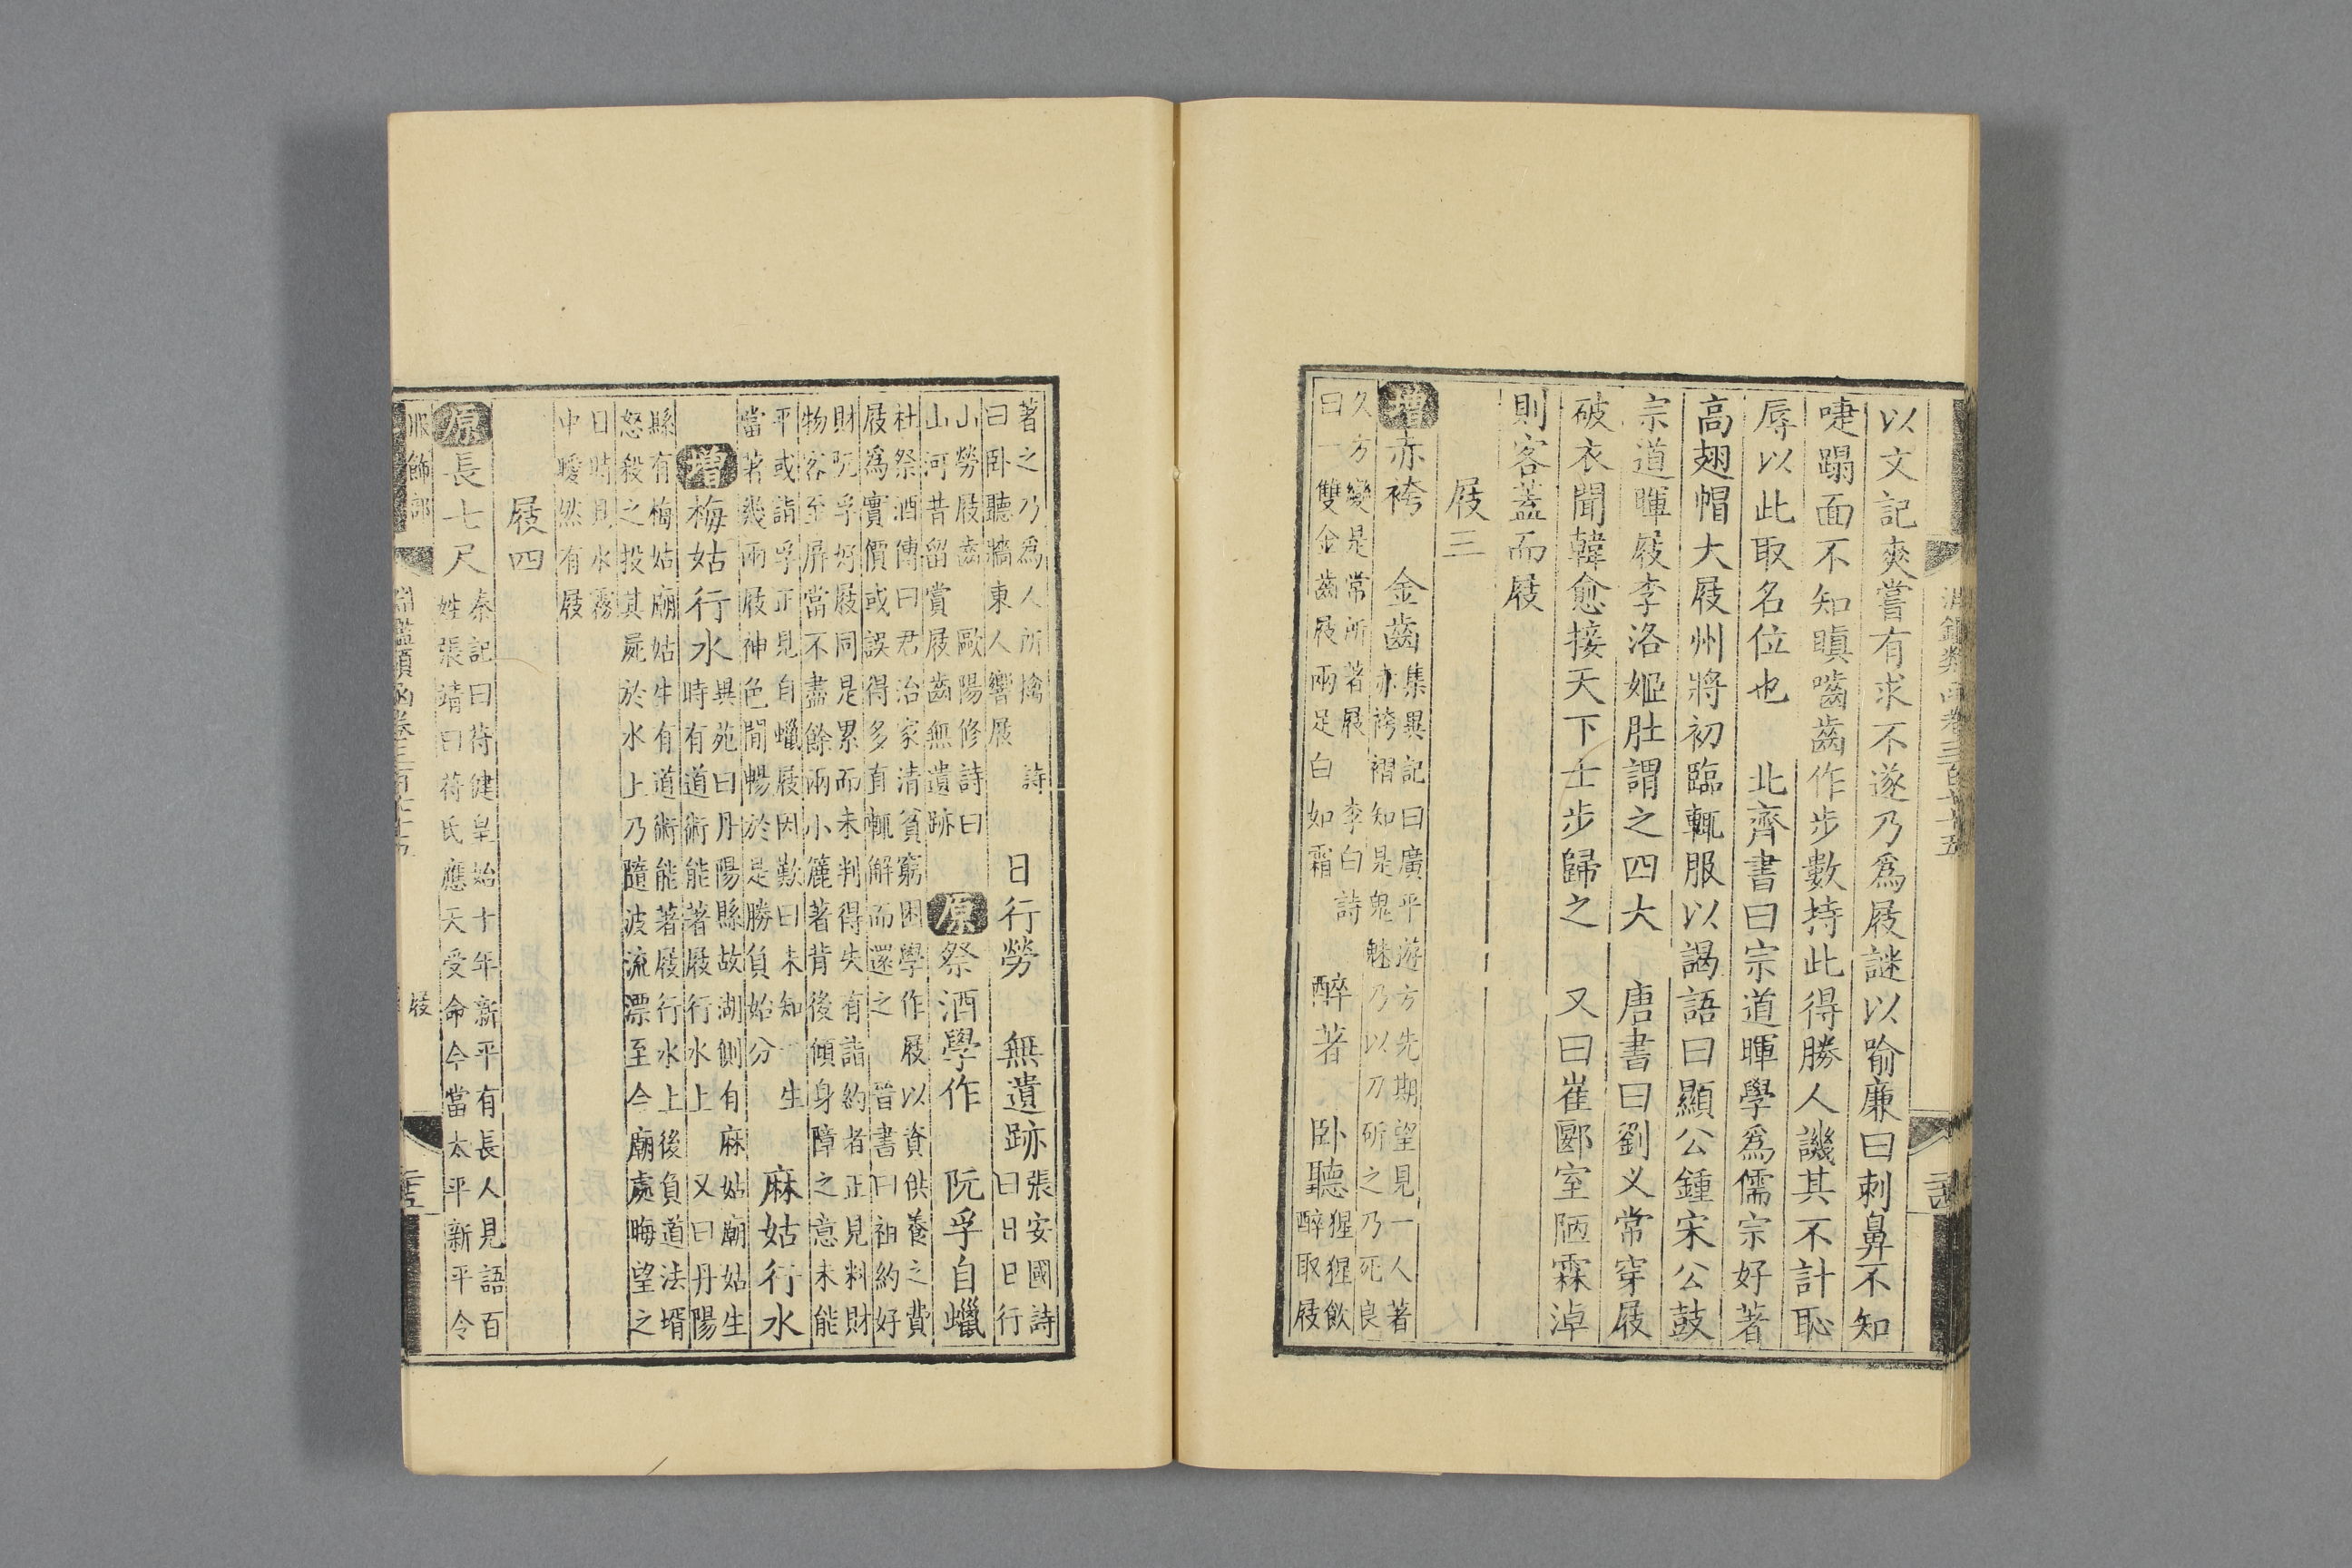 以文記奭嘗有求不遂乃爲屐謎以喻廉曰刺鼻不知
啑蹋面不知瞋嚙齒作步數持此得勝人譏其不計恥
辱以此取名位也 北齊書曰宗道暉學爲儒宗好著
高翅帽大屐州將初臨輒服以謁語曰顯公鍾宋公鼓
宗道暉屐李洛姬肚謂之四大 唐書曰劉义常穿屐
破衣聞韓愈接天下士步歸之 又曰崔郾室陋霖淖
則客蓋而屐
屐三
增赤袴 金齒
集異記曰廣平遊方先期望見一人著
亦袴褶知是鬼魅乃以刀斫之乃死良
久方變是常所著屐 李白詩
曰一雙金齒屐兩足白如霜
醉著 卧聽
猩猩飲
醉取屐
著之乃爲人所擒 詩
曰卧聽牆東人響屐
日行勞 無遺跡
張安國詩
曰日日行
山勞屐齒 歐陽修詩曰
山河昔留賞屐齒無遺跡
原祭酒學作 阮孚自蠟
杜祭酒傳曰君治家清貧窮困學作屐以資供養之費
屐爲實價或誤得多直輒解而還之 晉書曰祖約好
財阮孚好屐同是累而未判得失有詣約者正見料財
物客至屏當不盡餘兩小簏著背後傾身障之意未能
平或詣孚正見自蠟屐因歎曰未知一生
當著幾兩屐神色閒暢於是勝負始分
麻姑行水
增梅姑行水
異苑曰丹陽縣故湖側有麻姑廟姑生
時有道術能著屐行水上 又曰丹陽
縣有梅姑廟姑生有道術能著屐行水上後負道法壻
怒殺之投其屍於水上乃隨波流漂至今廟處晦望之
日時見水霧
中曖然有屐
屐四
原長七尺
秦記曰苻健皇始十年新平有長人見語百
姓張靖曰苻氏應天受命今當太平新平令
服飾部
淵鑑類函卷三百七十五
屐